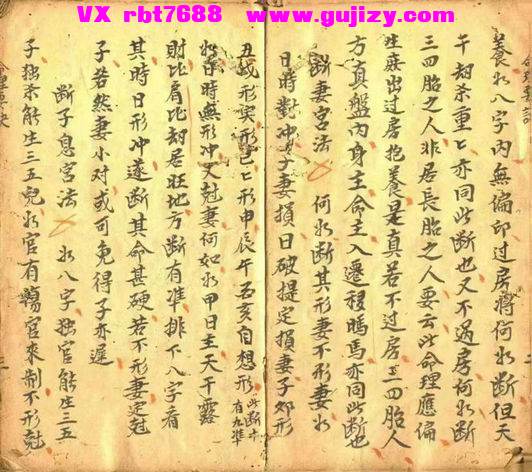 VX rbt7688 www.gujizy.com
養如八字內無偏印过房將何以断但天
干劫杀重亡亦同此断也又不过房何以断
三四胎之人非居長胎之人要云此命理應偏
生庶出过房抱養是真若不过房三四胎人
方真盤內身主命主入遷移鴎馬亦同此断也
断妻宮法 何以断其形妻不形妻以
日時對冲子妻損日破提定損妻子卯形
丑戌形寅形巳亡形申辰午酉亥自想形
此断十有九準
如日時無形冲又尅妻何如以甲日主天干露
財比肩比刼居旺地方断有准排下八字看
其時日形冲遂断其命甚硬若不形妻定尅
子若然妻小对或可免得子亦遲
断子息宮法 如八字独官能生三五
子独杀能生三五兒如官有傷官來制不形尅